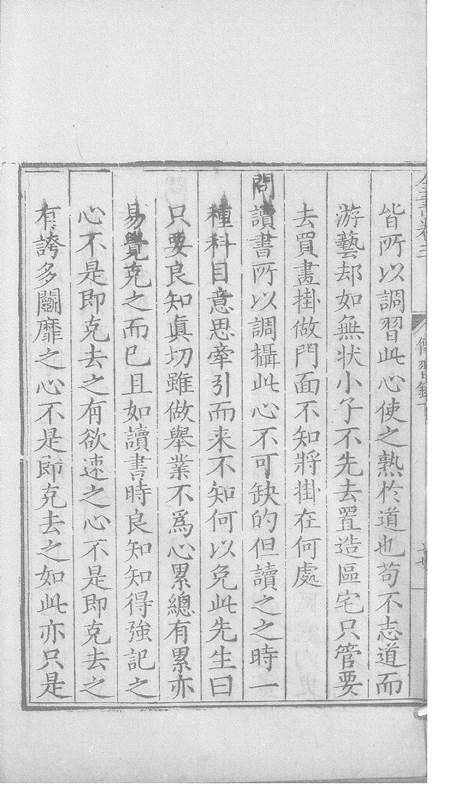 皆所以調習此心使之熟於道也苟不志道而
游藝却如無狀小子不先去置造區宅只管要
去買畫掛做門面不知將掛在何處
問讀書所以調攝此心不可缺的但讀之之時一
種科目意思牽引而来不知何以免此先生曰
只要良知真切雖做舉業不爲心累總有累亦
易覺克之而已且如讀書時良知知得強記之
心不是即克去之有欲速之心不是即克去之
有誇多鬭靡之心不是即克去之如此亦只是